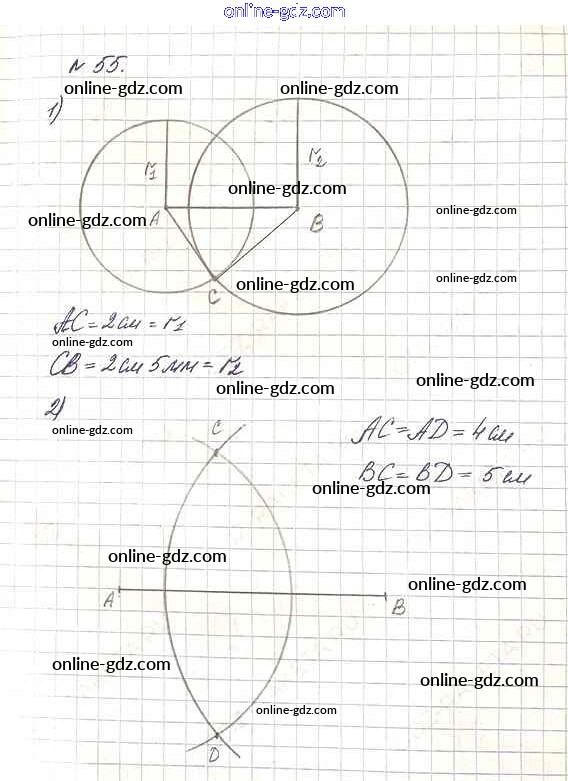 online-gdz.com
№ 55.
online-gdz.com online-gdz.com
1)
r1 r2
online-gdz.com
online-gdz.com A B online-gdz.com
online-gdz.com online-gdz.com
C
AC = 2 см = r1
online-gdz.com
CB = 2 см 5 мм = r2
online-gdz.com online-gdz.com
2)
online-gdz.com C AC = AD = 4 см
BC = BD = 5 см
online-gdz.com
online-gdz.com
online-gdz.com
A B
online-gdz.com
online-gdz.com
online-gdz.com
D